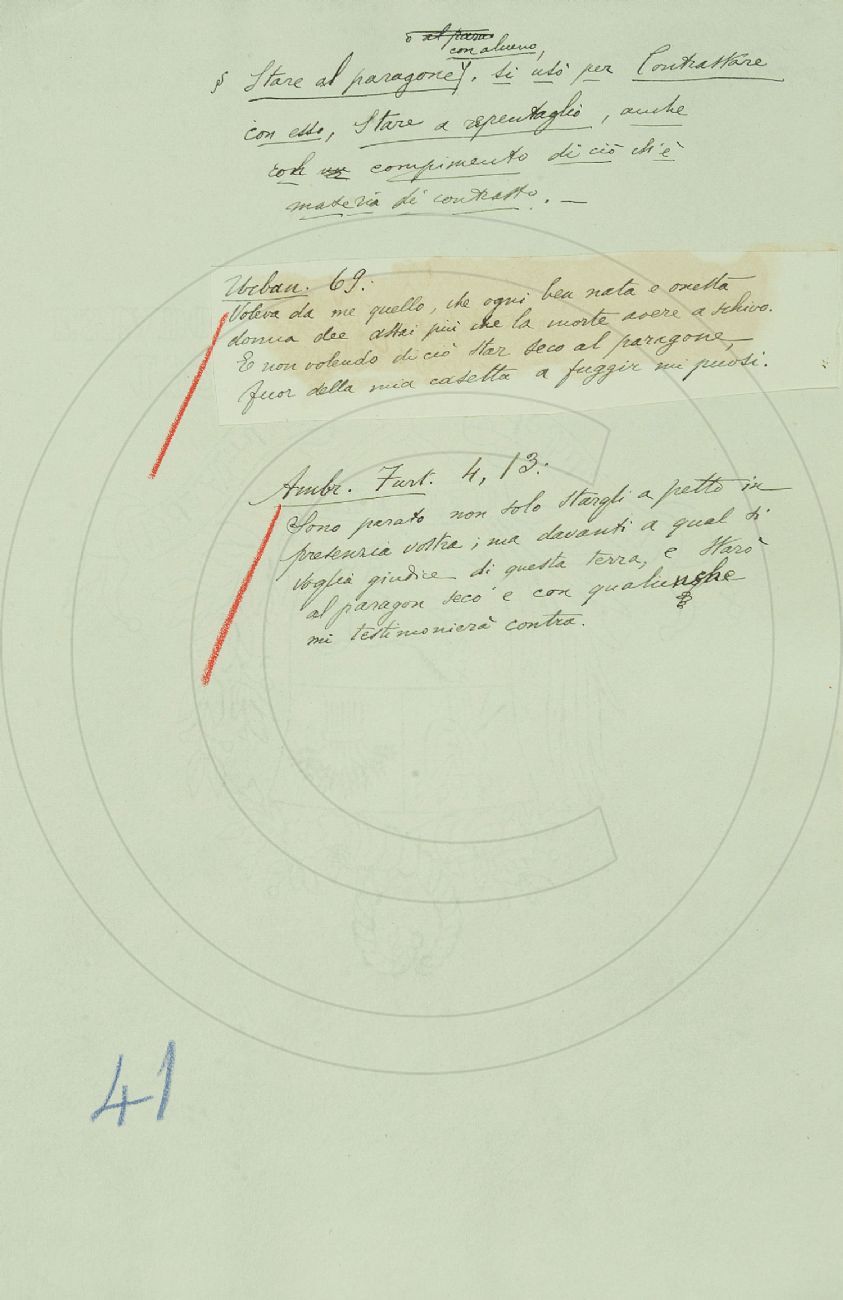 o al para
con alcuno,
§ Stare al paragone, si usò per Contrastare
con esso, Stare a repentaglio, anche
con compimento di ciò ch'è
materia di contrasto. —
Urban. 69:
Voleva da me quello, che ogni ben nata e onesta
donna dee assai più che la morte avere a schivo.
E non volendo di ciò star seco al paragone,
fuor della mia casetta a fuggir mi puosi.
Ambr. Furt. 4, 13:
Sono parato non solo stargli a petto in
presenzia vostra; ma davanti a qual si
voglia giudice di questa terra, e starò
al paragon seco e con qualunche
mi testimonierà contra.
41